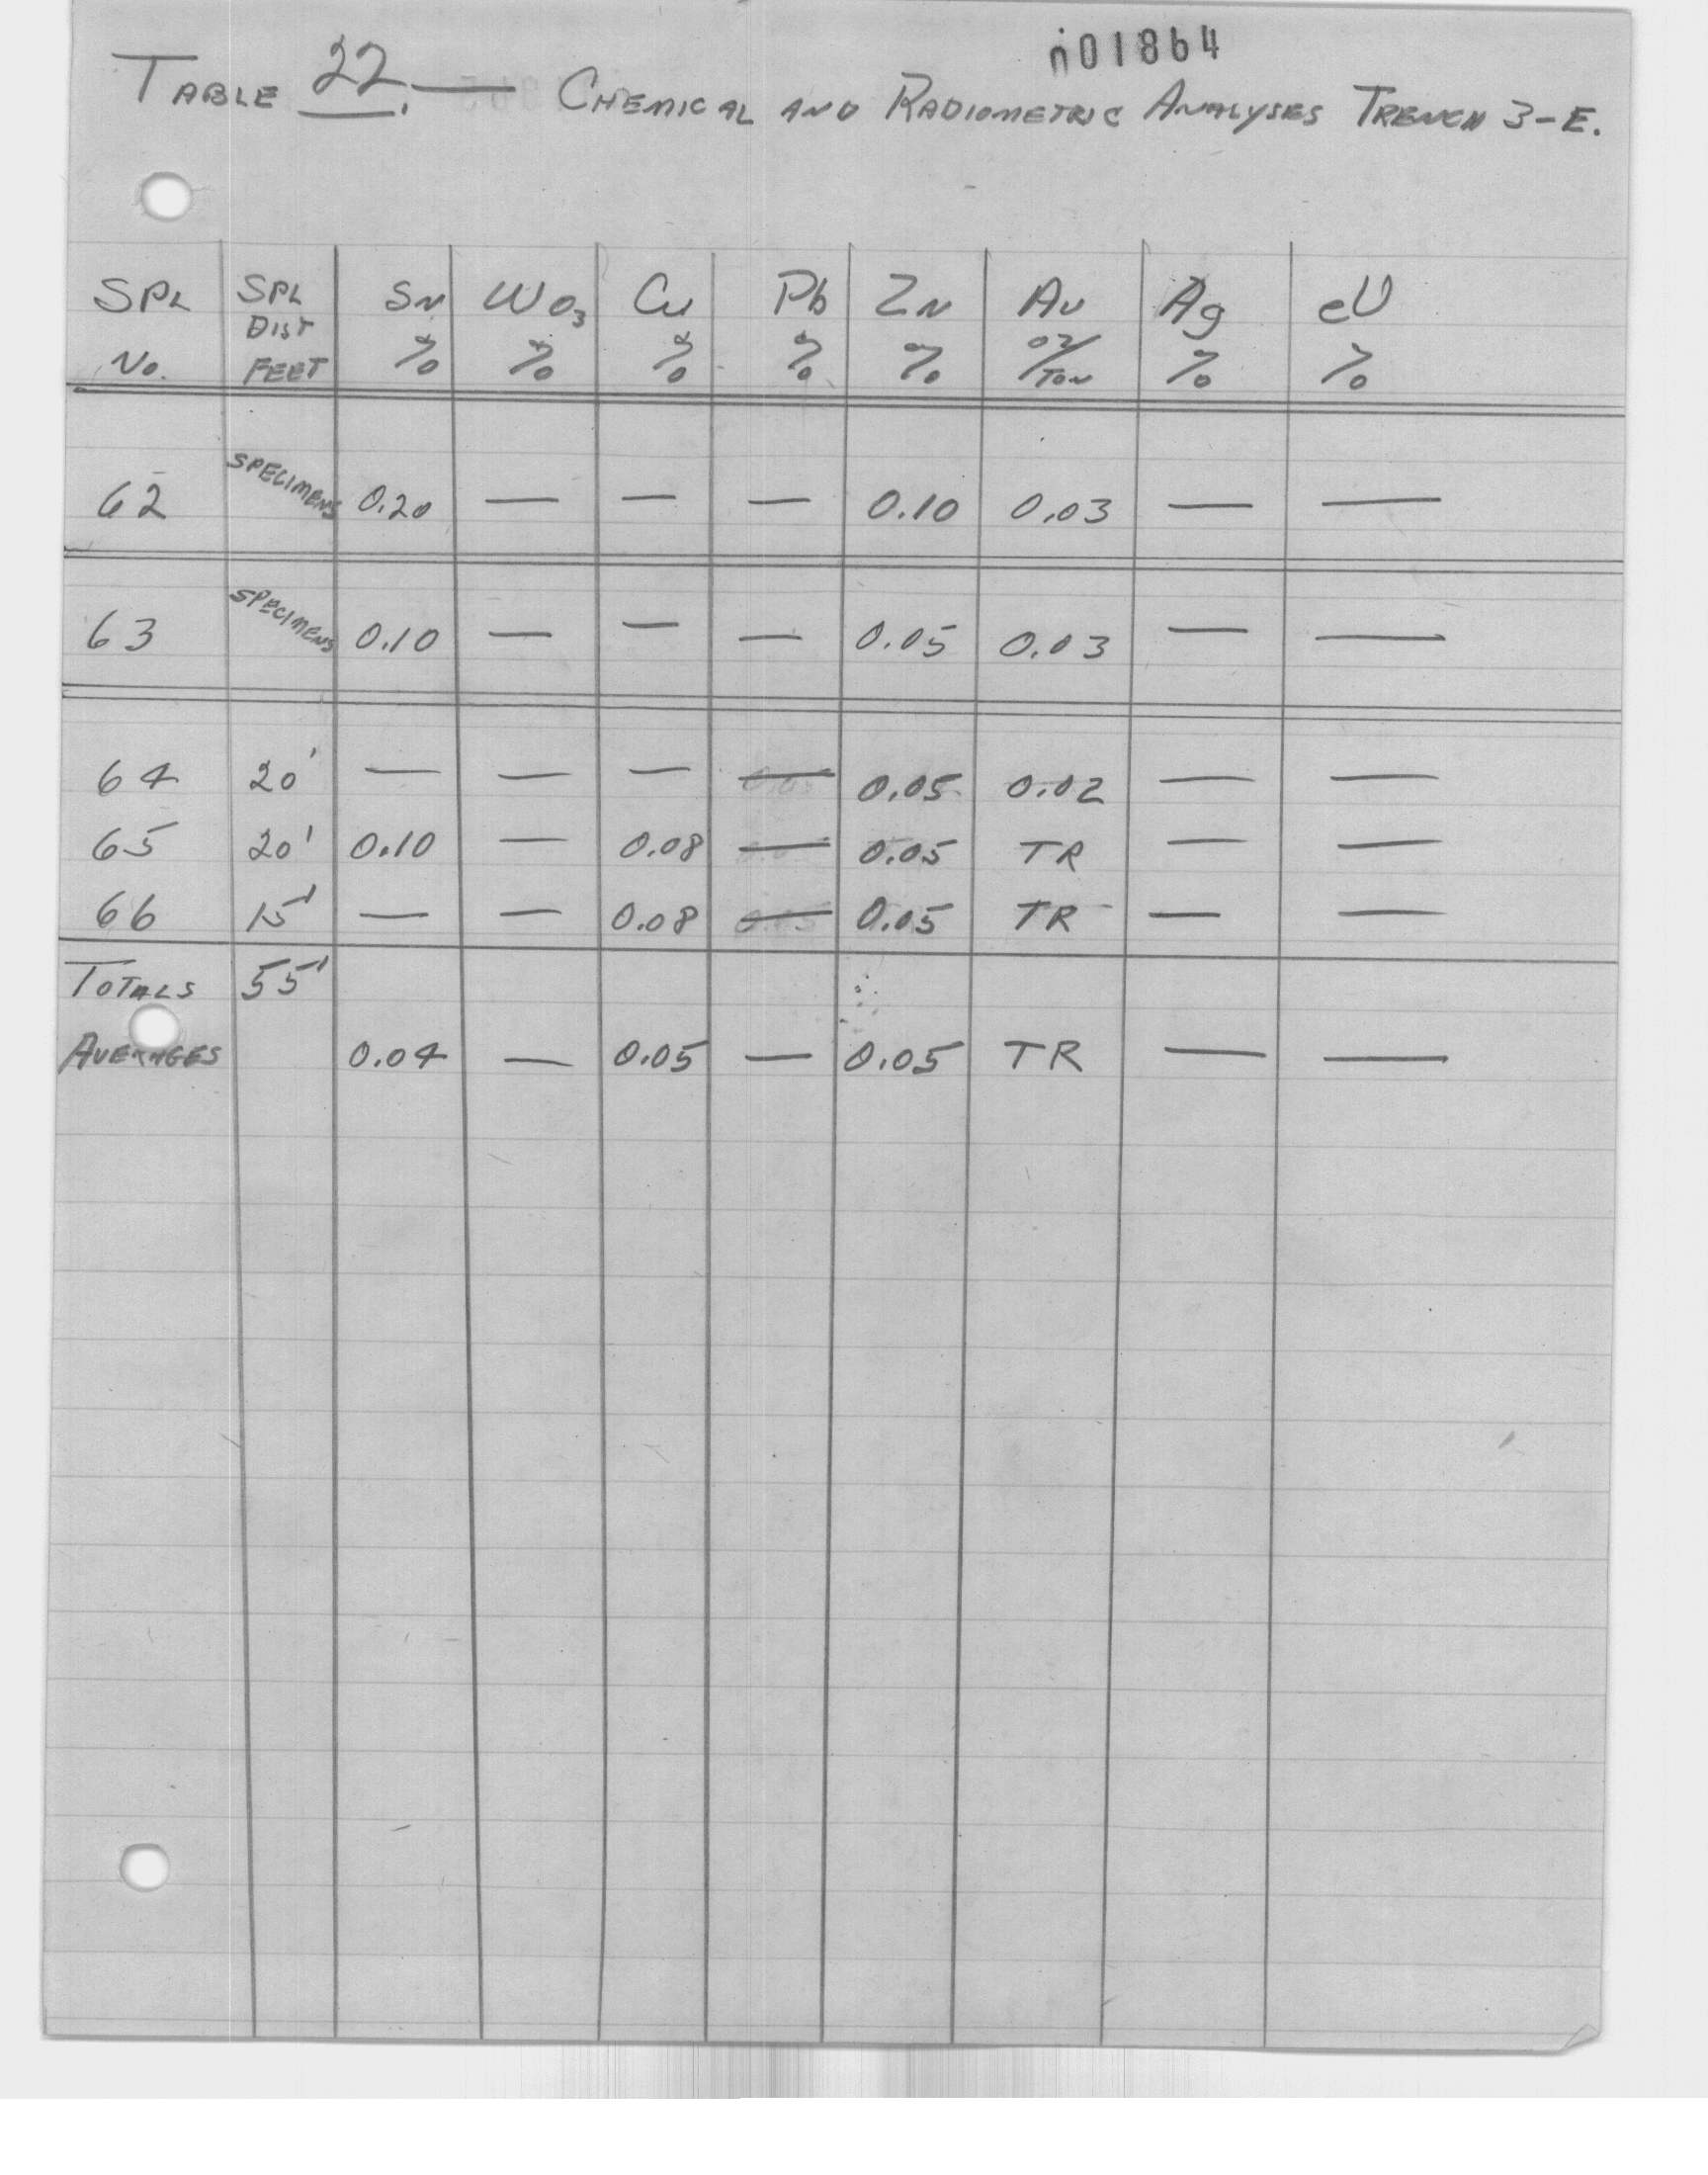 n01864
TABLE 22. — CHEMICAL AND RADIOMETRIC ANALYSES TRENCH 3-E.
SPL No. SPL DIST FEET Sn % WO3 % Cu % Pb % Zn % Au oz/TON Ag % eU %
62 SPECIMENS 0.20 — — — 0.10 0.03 — —
63 SPECIMENS 0.10 — — — 0.05 0.03 — —
64 20' — — — — 0.05 0.02 — —
65 20' 0.10 — 0.08 — 0.05 TR — —
66 15' — — 0.08 — 0.05 TR — —
TOTALS 55'
AVERAGES 0.04 — 0.05 — 0.05 TR — —